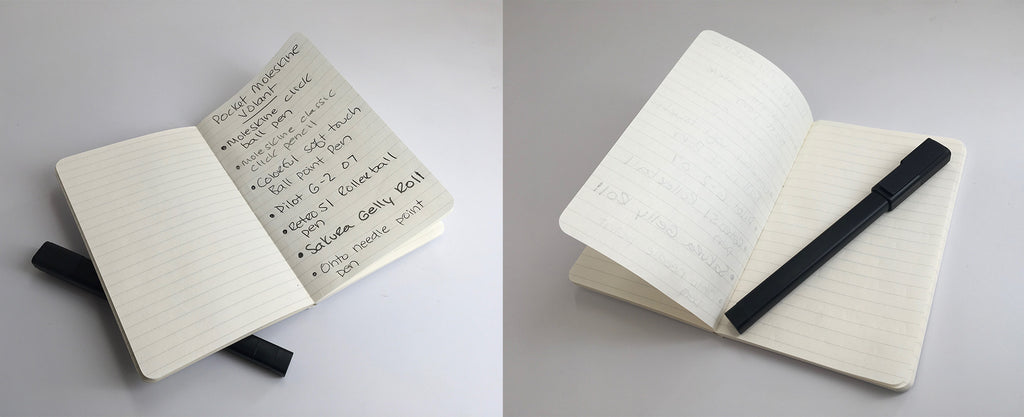 Pocket Moleskine
Volant
• Moleskine click
ball pen
• Moleskine classic
click pencil
• Colorful soft touch
Ball point Pen
• Pilot G-2 07
• Retro 51 Rollerball
pen
• Sakura Gelly Roll
• Ohto needle point
pen